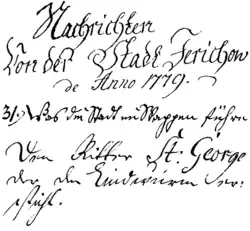 Nachrichten
Von der Stadt Jerichow
de Anno 1779.
31.) Was die Stadt im Wappen führe
Den Ritter St. George
der den Lindwurm er-
sticht.